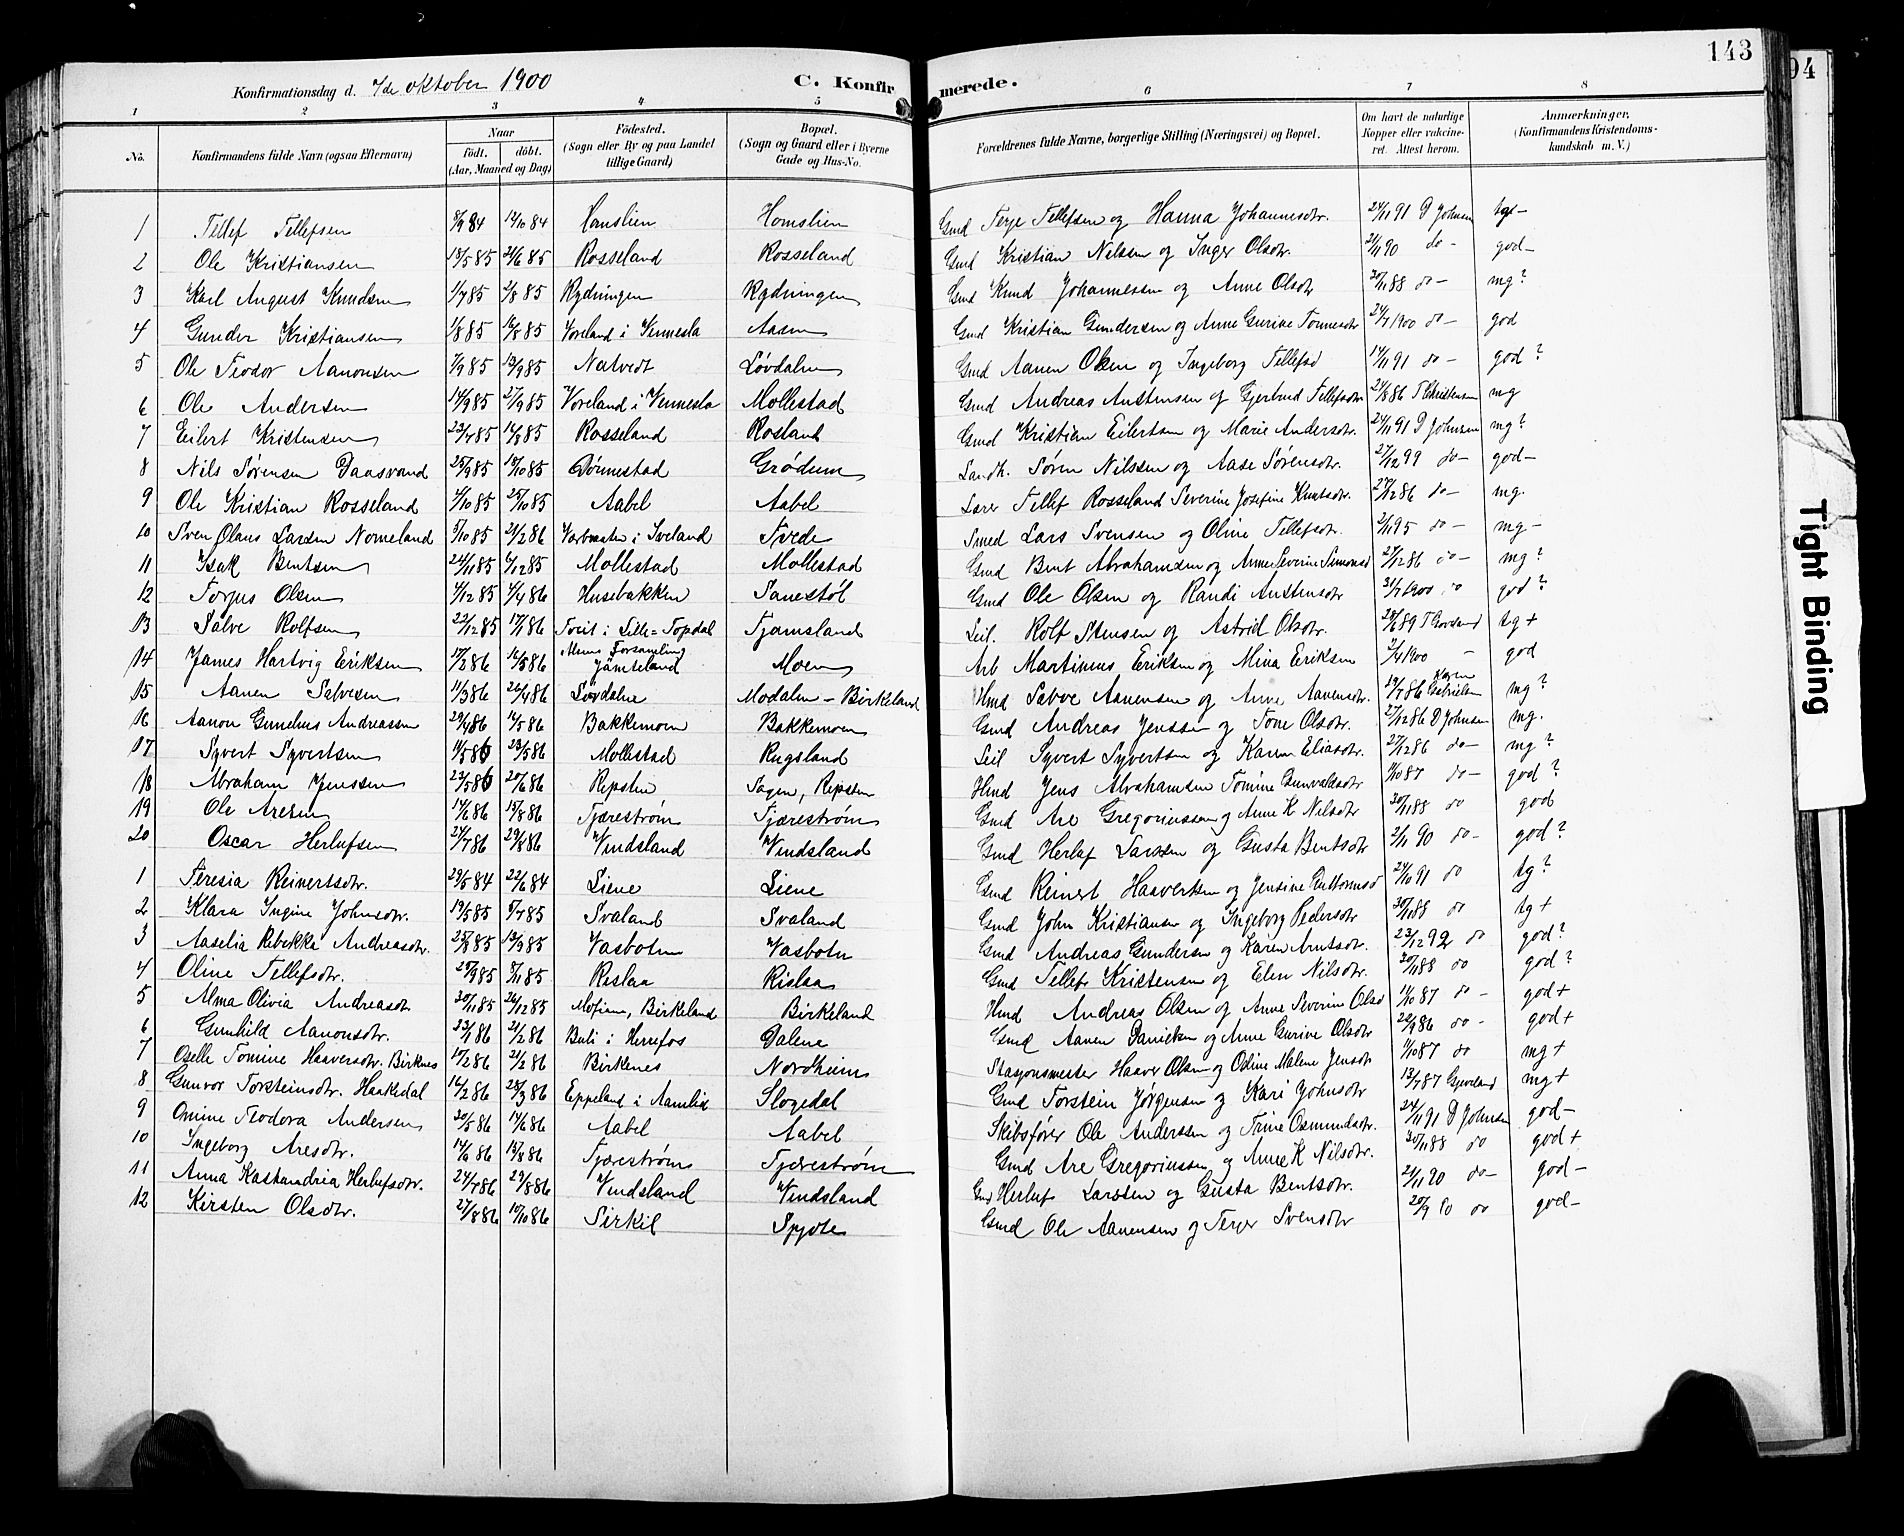 143
94
Konfirmationsdag d. 7de oktober 1900 C. Konfirmerede.
1 2 3 4 5 6 7 8
No. Konfirmandens fulde Navn (ogsaa Efternavn) Naar födt. döbt. (Aar, Maaned og Dag) Födested. (Sogn eller By og paa Landet tillige Gaard) Bopæl. (Sogn og Gaard eller i Byerne Gade og Hus-No. Forældrenes fulde Navne, borgerlige Stilling (Næringsvei) og Bopæl. Om havt de naturlige Kopper eller vakcineret. Attest herom. Anmærkninger. (Konfirmandens Kristendomskundskab m. V.)
1 Tellef Tellefsen 8/9 84 12/10 84 Homslien Homslien Gmd Terje Tellefsen og Hanna Johannesdtr. 24/11 91 D Johnsen tg-
2 Ole Kristiansen 13/5 85 21/6 85 Rosseland Rosseland Gmd Kristian Nilsen og Inger Olsdtr. 21/11 90 do- god-
3 Karl August Knudsen 1/7 85 2/8 85 Rydningen Rydningen Gmd Knud Johannessen og Anne Olsdtr 30/11 88 do- mg?
4 Gunder Kristiansen 1/8 85 16/8 85 Voreland i Vennesla Aasen Gmd Kristian Gundersen og Anne Gurine Tonnesdtr 21/7 1900 do- god
5 Ole Teodor Aanonsen 7/9 85 13/9 85 Natvedt Løvdalen Gmd Aanen Olsen og Ingeborg Tellefsd 14/11 91 do- god?
6 Ole Andersen 14/9 85 27/9 85 Voreland i Vennesla Mollestad Gmd Andreas Austensen og Gjertrud Tellefsdtr 24/8 86 T Christensen mg
7 Eilert Kristensen 23/7 85 16/8 85 Rosseland Rosland Gmd Kristian Eilertsen og Marie Andersdtr. 24/11 91 D Johnsen mg?
8 Nils Sørensen Daasvand 25/9 85 18/10 85 Dønnestad Grødum Landh. Søren Nilssen og Aase Sørensdtr. 27/12 99 do- god-
9 Ole Kristian Rosseland 4/10 85 25/10 85 Aabel Aabel Lærer Tellef Rosseland Severine Josefine Knutsdtr. 27/12 86 do- mg.
10 Sven Olaus Larsen Nomeland 5/10 85 21/2 86 i Iveland Tvede Smed Lars Svensen og Oline Tellefsdtr 2/11 95 do- mg-
11 Isak Bentsen 24/11 85 6/12 85 Mollestad Mollestad Gmd Bent Abrahamsen og Anne Severine Simonsd 27/12 86 do- mg?
12 Torjus Olsen 4/12 85 4/4 86 Husebakken Sanestøl Gmd Ole Olsen og Randi Austensdtr 31/7 1900 do god?
13 Salve Rolfsen 22/12 85 17/1 86 Tveit i Lille=Topdal Tjamsland Leil. Rolf Stensen og Astrid Olsdtr. 28/6 89 T tg+
14 James Hartvig Eriksen 17/2 86 16/5 86 Forsamling Jämteland Moen Arb Martinius Eriksen og Mina Eriksen 7/4 1900 - god
15 Aanen Salvesen 11/3 86 26/4 86 Løvdalen Modalen - Birkeland Hmd Salve Aanensen og Anne Aanensdtr. 19/7 86 Karen Gabrielsen mg?
16 Aanon Gunelius Andreassen 29/4 86 16/5 86 Bakkemoen Bakkemoen Gmd Andreas Jenssen og Tone Olsdtr. 27/12 86 D Johnsen mg.
17 Syvert Syvertsen 11/5 86 23/5 86 Mollestad Rugsland Leil Syvert Syvertsen og Karen Eliasdtr. 27/12 86 do- mg?
18 Abraham Jenssen 23/5 86 20/6 86 Repsten Sagen, Repsten Hmd Jens Abrahamsen Tomine Gunvaldsdtr 1/10 87 do- god?
19 Ole Aresen 14/6 86 15/8 86 Tjærestrøm Tjærestrøm Gmd Are Gregoriussen og Anne K Nilsdtr 30/11 88 do god
20 Oscar Herlufsen 24/7 86 29/8 86 Vindsland Vindsland Gmd Herluf Larssen og Gusta Bentsdtr 21/11 90 do- god?
1 Teresia Reinertsdtr. 29/5 84 22/6 84 Liene Liene Gmd Reinert Haavertsen og Jensine Guttormsd 24/10 91 do tg?
2 Klara Ingine Johnsdtr. 19/5 85 5/7 85 Svaland Svaland Gmd John Kristiansen og Ingeborg Pedersdtr 30/11 88 do tg+
3 Aaselia Rebekke Andreasdtr. 25/8 85 13/9 85 Vasbotn Vasbotn Gmd Andreas Gundersen og Karen Arntsdtr. 23/12 92 do god?
4 Oline Tellefsdtr. 25/9 85 8/11 85 Rislaa Rislaa Gmd Tellef Kristensen og Elen Nilsdtr. 30/11 88 do god?
5 Alma Olivia Andreasdtr 20/11 85 26/12 85 Mofien, Birkeland Birkeland Hmd Andreas Olsen og Anne Severine Olsd 11/10 87 do- god+
6 Gunhild Aanonsdtr. 23/1 86 21/2 86 Beli i Herrefos Dalene Gmd Aanen Danielsen og Anne Gurine Olsdtr 22/9 86 do- god+
7 Oselle Tomine Haaversdtr. Birknes 17/2 86 21/2 86 Birkenes Nordheim Stasjonsmester Haaver Olsen og Odine Malene Jensdtr 11/10 87 do mg+
8 Gunvor Torsteinsdtr. Haakedal 16/2 86 28/3 86 Eppeland i Aamlid Slogedal Gmd Torstein Jørgensen og Kari Johnsdtr 13/7 87 Gjeveland mg+
9 Omine Teodora Andersen 20/5 86 14/6 86 Aabel Aabel Skibsfører Ole Anderssen og Trine Osmundsdtr. 24/11 91 D Johnsen god-
10 Ingeborg Aresdtr. 14/6 86 15/8 86 Tjærestrøm Tjærestrøm Gmd Are Gregoriussen og Anne K Nilsdtr. 30/11 88 do god+
11 Anna Kaskandria Herlufsdtr. 24/7 86 29/8 86 Vindsland Vindsland Gmd Herluf Larssen og Gusta Bentsdtr. 21/11 90 do- god-
12 Kirsten Olsdtr. 27/8 86 10/10 86 Sirkil Spjote Gmd Ole Aanensen og Terjer Svensdtr 20/9 do god-
Tight Binding